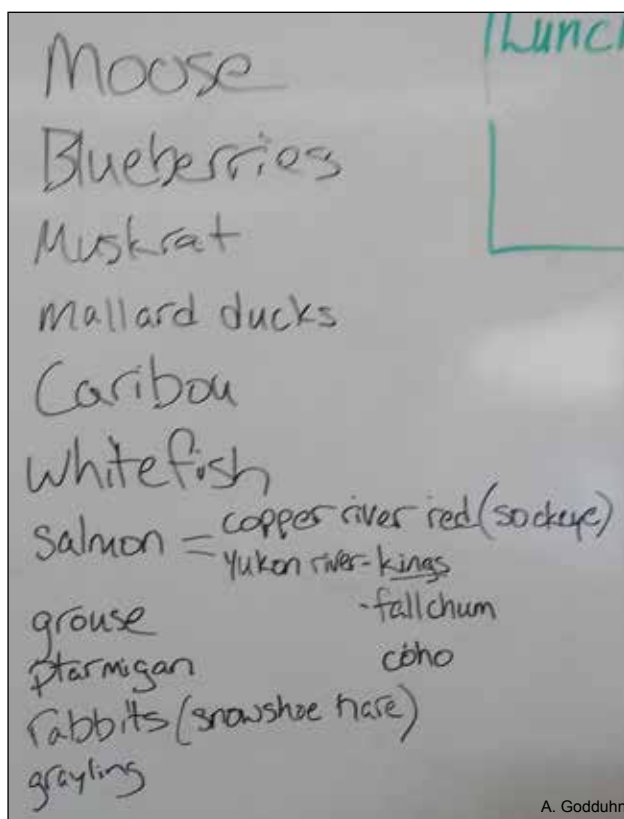 Moose
Blueberries
Muskrat
Mallard ducks
Caribou
Whitefish
salmon = copper river red (sockeye)
Yukon river - kings
- fall chum
coho
grouse
ptarmigan
rabbits (snowshoe hare)
grayling
A. Godduhn